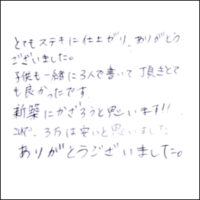 とてもステキに仕上がり、ありがとう
ございました。
子供も一緒に3人で書いて頂きとて
も良かったです
新築にかざろうと思います!!
3万は安いと思いました
ありがとうございました。